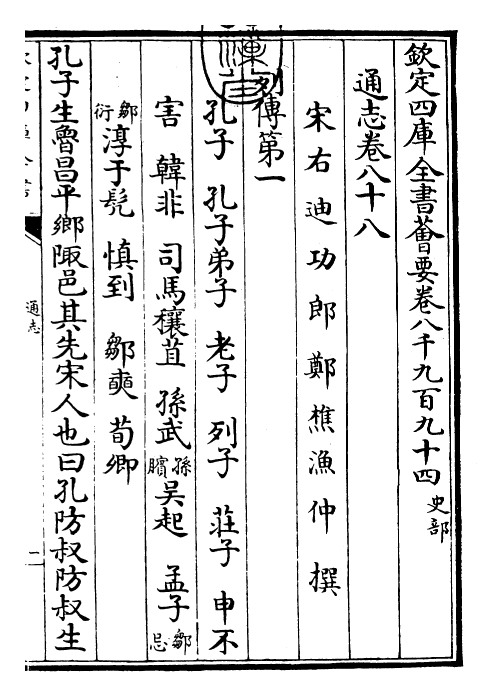 欽定四庫全書薈要卷八千九百九十四 史部
通志卷八十八
宋右迪功郎鄭樵漁仲撰
列傳第一
孔子 孔子弟子 老子 列子 莊子 申不
害 韓非 司馬穰苴 孫武 孫臏 吳起 孟子 鄒忌
鄒衍 淳于髡 慎到 鄒奭 荀卿
孔子生魯昌平鄉陬邑其先宋人也曰孔防叔防叔生
通志
二